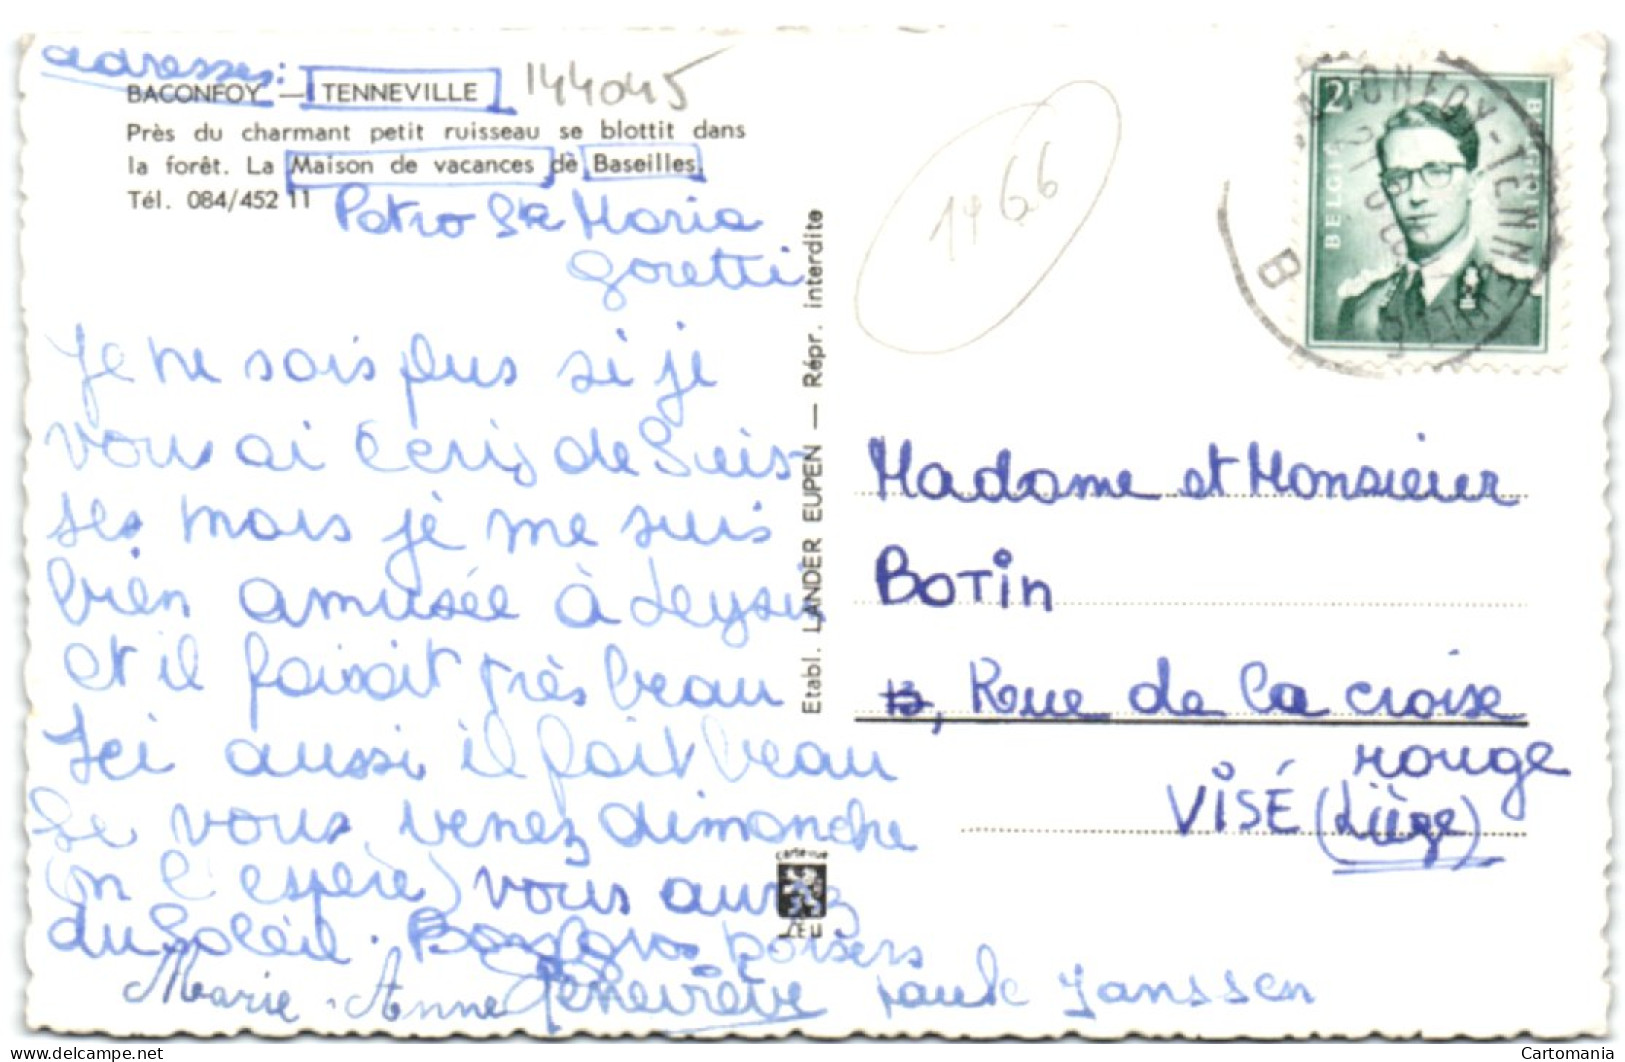 adresses:
BACONFOY — TENNEVILLE 144045
Près du charmant petit ruisseau se blottit dans
la forêt. La Maison de vacances de Baseilles.
Tél. 084/452 11
Patro Sta Maria
Goretti
1466
Je ne sais plus si je
vous ai écris de Suis-
ses mais je me suis
bien amusée à Leysin
et il faisait très beau
Ici aussi il fait beau
Se vous venez dimanche
(on l'espère) vous aurez
du Soleil. Bons gros baisers
Marie-Anne Geneviève Paule Janssen
Etabl. LANDER EUPEN — Répr. interdite
BELGIE 2F BELGIQUE
BACONFOY-TENNEVILLE
B
Madame et Monsieur
BOTin
13, Rue de la croise
rouge
VISÉ (Liège)
Cartomania